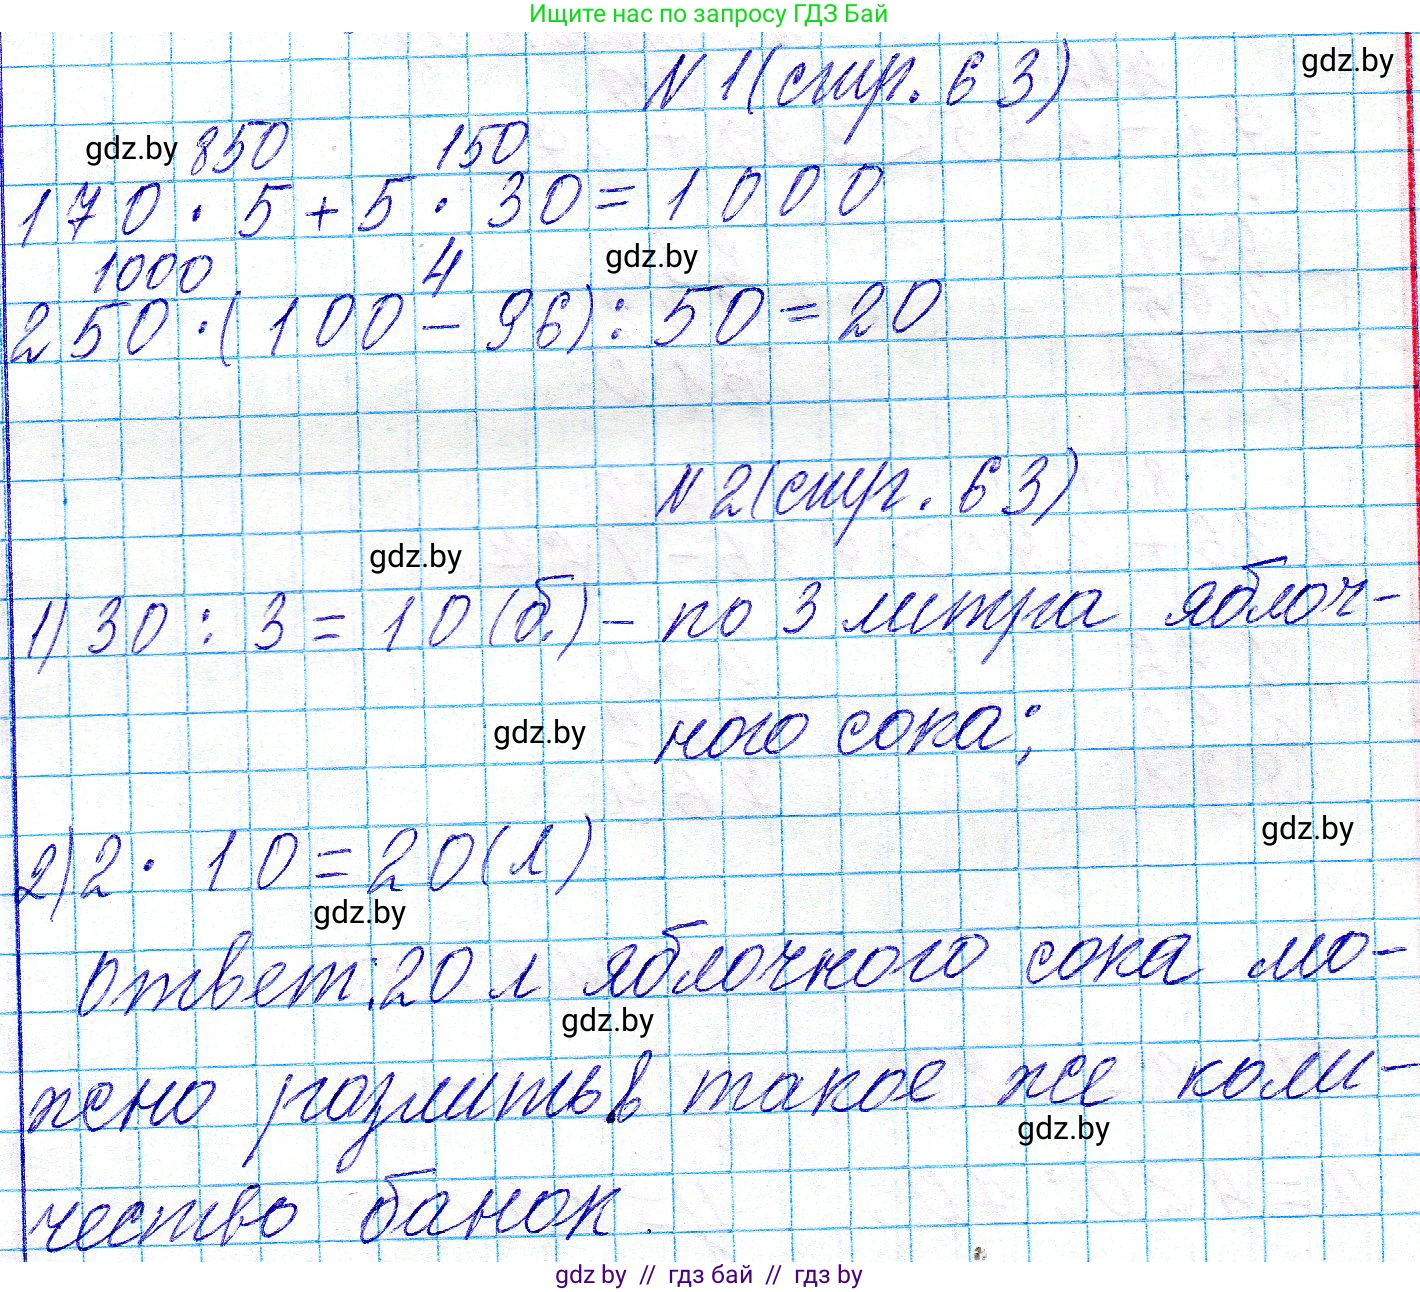 Ищите нас по запросу ГДЗ Бай
N 1 (стр. 63)
gdz.by
gdz.by 850 150
170 · 5 + 5 · 30 = 1000
1000 4 gdz.by
250 · (100 - 96) : 50 = 20
N 2 (стр. 63)
gdz.by
1) 30 : 3 = 10 (б.) - по 3 литра яблоч-
gdz.by ного сока;
gdz.by
2) 2 · 10 = 20 (л)
gdz.by
ответ: 20 л яблочного сока мо-
gdz.by
жно разлить в такое же коли-
gdz.by
чество банок.
gdz by // гдз бай // гдз by